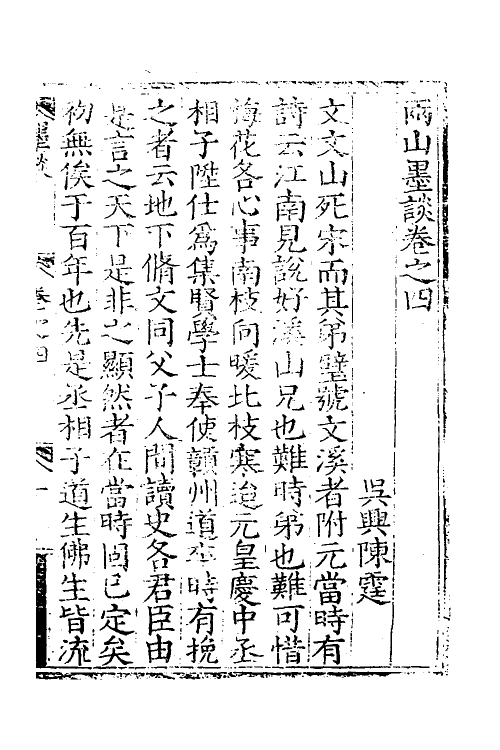 兩山墨談卷之四
吳興陳霆
文文山死宋而其弟璧號文溪者附元當時有
詩云江南見說好溪山兄也難時弟也難可惜
梅花各心事南枝向暖北枝寒迨元皇慶中丞
相子陞仕爲集賢學士奉使贛州道卒時有挽
之者云地下脩文同父子人間讀史各君臣由
是言之天下是非之顯然者在當時固已定矣
初無俟于百年也先是丞相子道生佛生皆流
墨談
卷之四
一